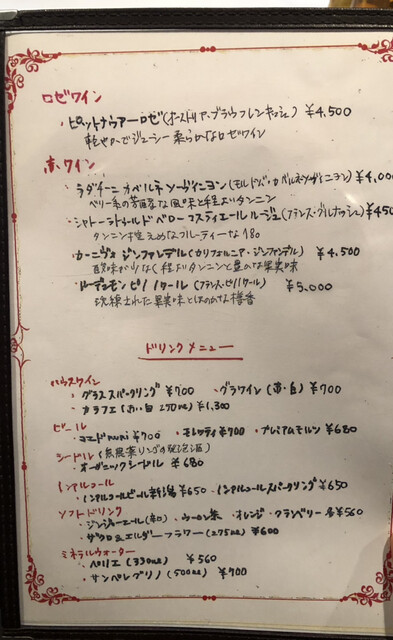 ロゼワイン
・ピットナウアーロゼ(オーストリア・ブラウフレンキッシュ) ¥4,500
軽やかでジューシー柔らかなロゼワイン
赤ワイン
・ラダチーニ カベルネ・ソーヴィニヨン(モルドバ・カベルネ・ソーヴィニヨン) ¥4,00
ベリー系の芳醇な風味と程よいタンニン
・シャトーラ ベロー ルージュ(フランス・グルナッシュ) ¥450
タンニン控えめなフルーティーな
・カーニヴォ ジンファンデル(カリフォルニア・ジンファンデル) ¥4,500
酸味が少なく程よいタンニンと豊かな果実味
ピノノワール(フランス・ピノノワール) ¥5,000
洗練された果実味とほのかな樽香
ドリンクメニュー
ハウスワイン
・グラススパークリング ¥700 ・グラスワイン(赤・白) ¥700
・カラフェ(赤・白 270ml) ¥1,300
ビール
・コエドruri ¥700 ・モレッティ ¥700 ・プレミアムモルツ ¥680
シードル(無農薬リンゴの発泡酒)
・オーガニックシードル ¥680
ノンアルコール
・ノンアルコールビール新潟 ¥650 ・ノンアルコールスパークリング ¥650
ソフトドリンク
・ジンジャーエール(辛口) ・ウーロン茶 ・オレンジ・クランベリー 各¥560
・ザクロ&エルダーフラワー(275ml) ¥600
ミネラルウォーター
・ペリエ(330ml) ¥560
・サンペレグリノ(500ml) ¥700